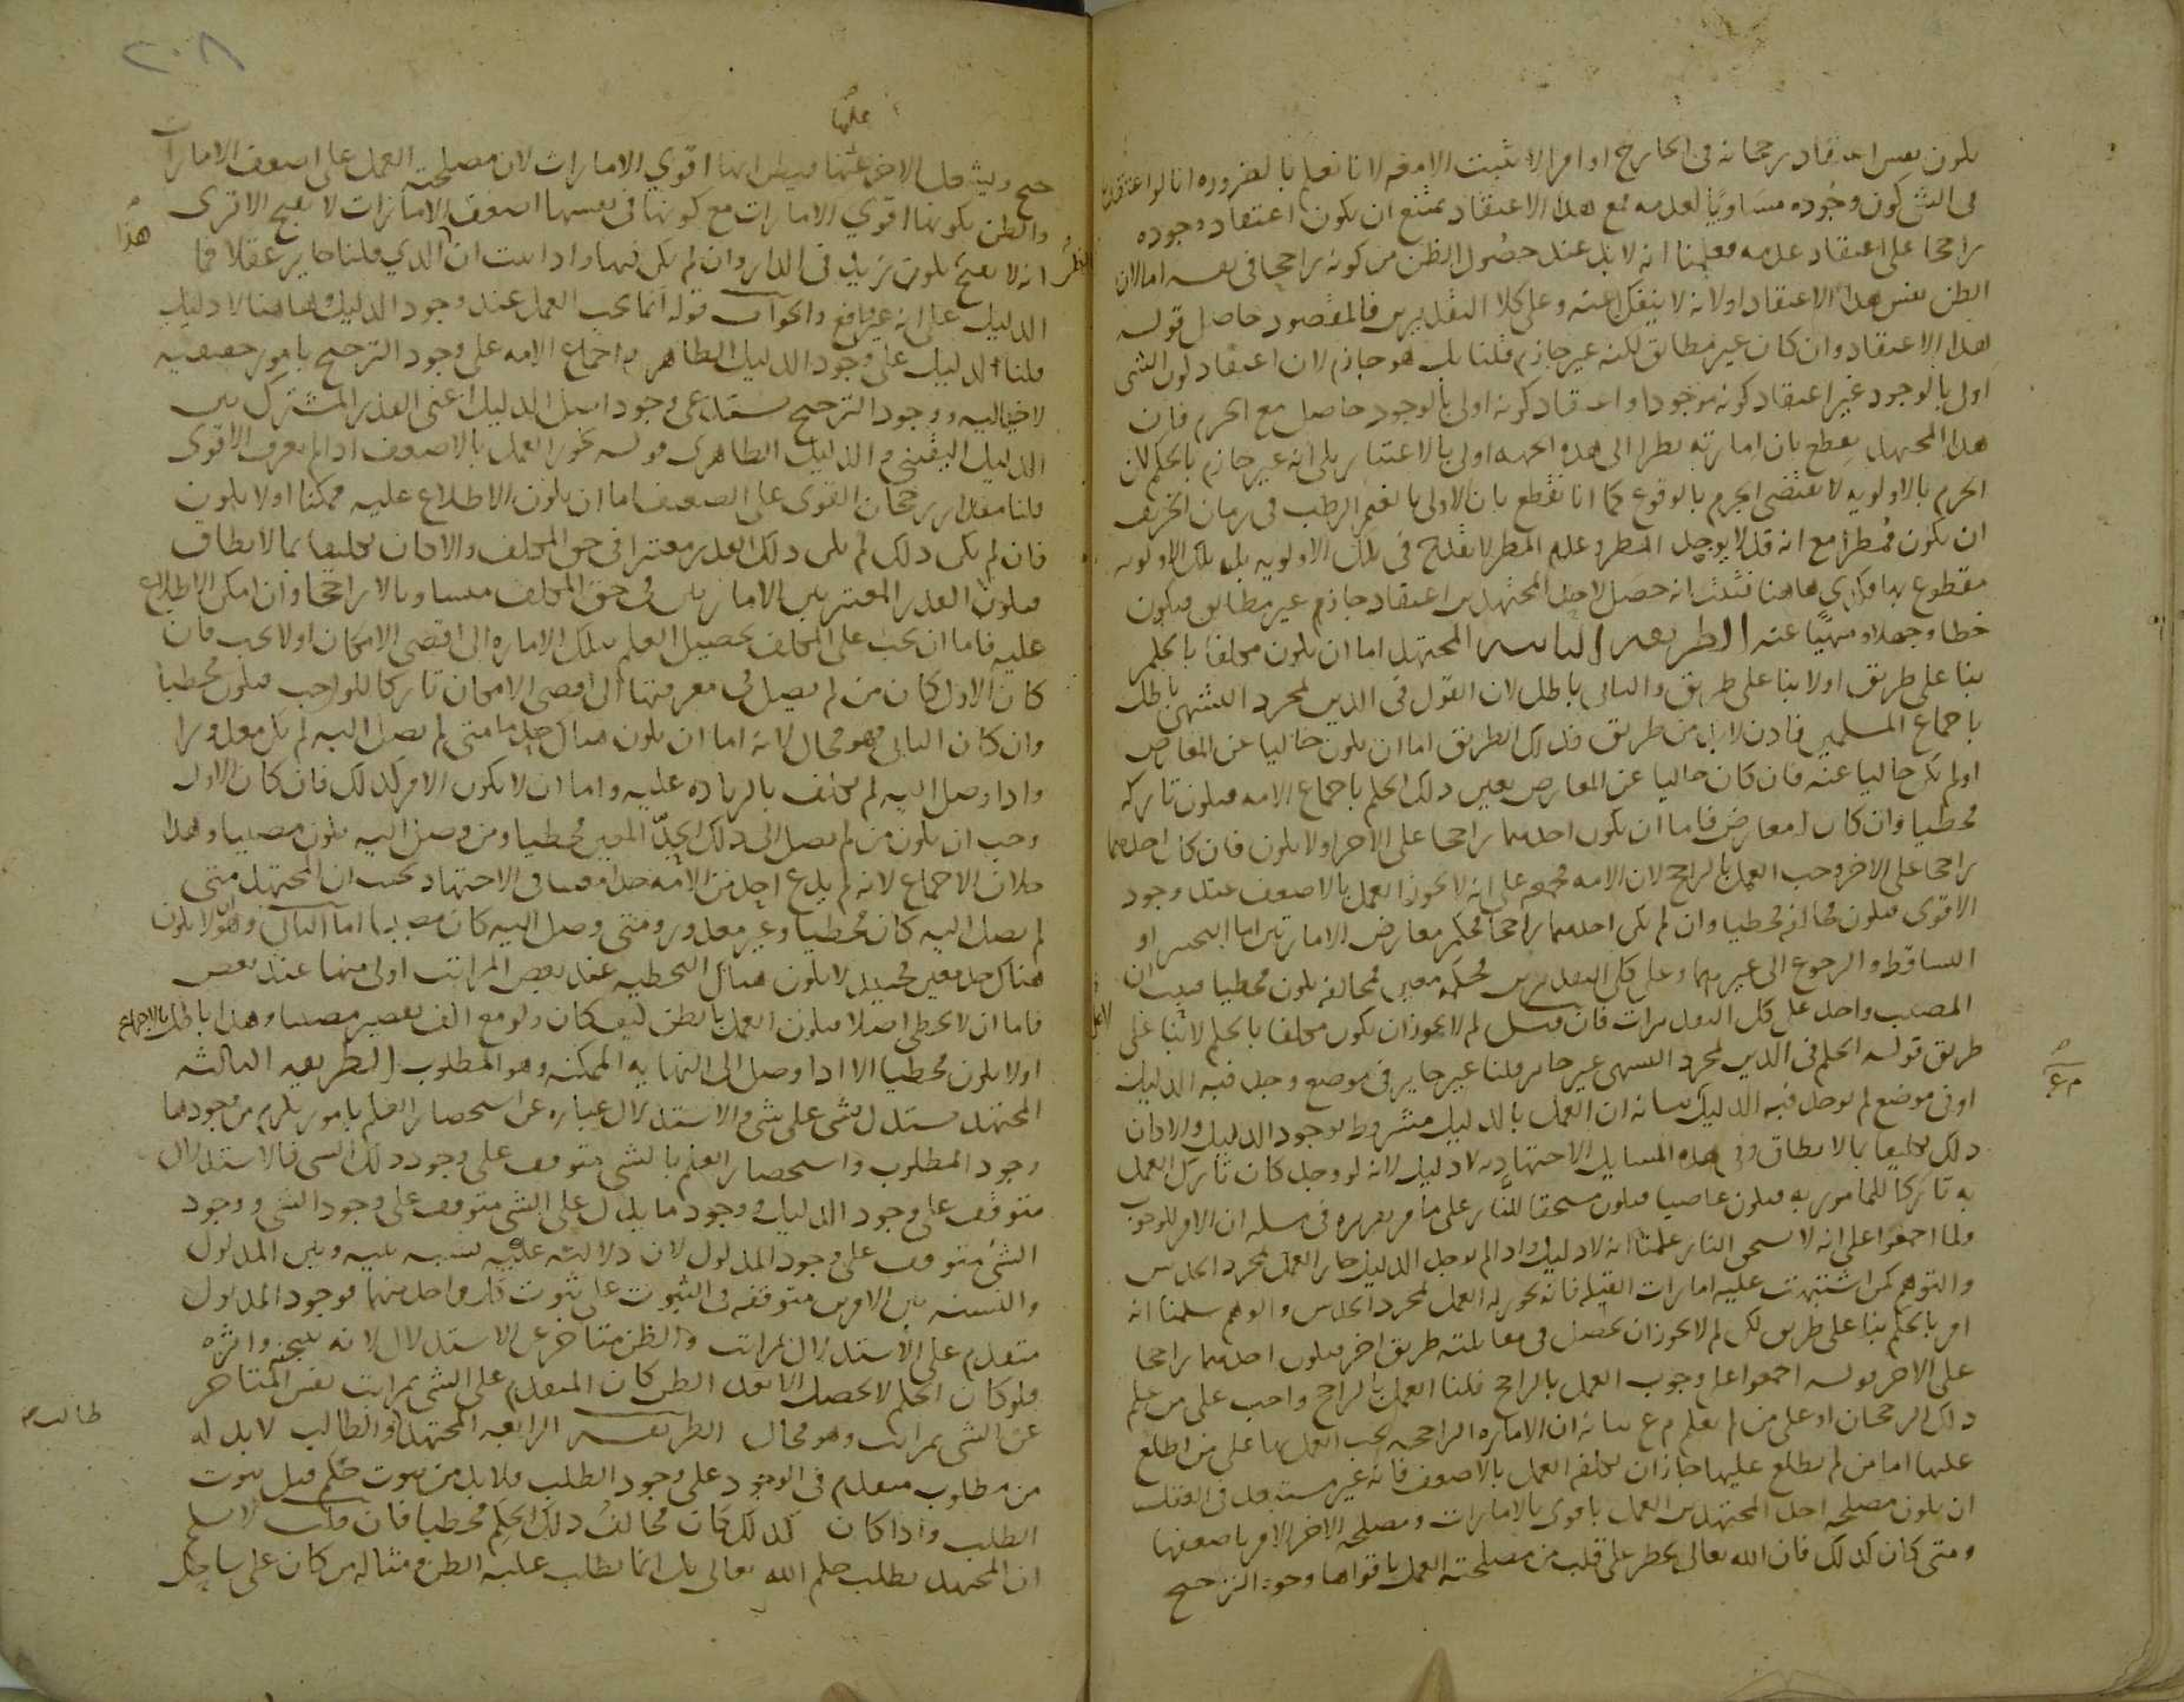 يكون نفس اعتقاد رجحانه في الخارج او امرا لا يثبت الا معه لانا نعلم بالضروره انا لو اعتقدنا
في الشي كون وجوده مساويا لعدمه فمع هذا الاعتقاد يمتنع ان يكون اعتقاد وجوده
راجحا على اعتقاد عدمه فعلمنا انه لا بد عند حصول الظن من كونه راجحا في نفسه اما لان
الظن نفس هذا الاعتقاد او لانه لا ينفك عنه وعلى كلا التقديرين فالمقصود حاصل قوله
هذا الاعتقاد وان كان غير مطابق لكنه غير جازم قلنا بل هو جازم لان اعتقاد كون الشي
اولى بالوجود غير اعتقاد كونه موجودا واعتقاد كونه اولى بالوجود حاصل مع الجزم فان
هذا المجتهد يقطع بان امارته نظرا الى هذه الجهه اولى بالاعتبار بلى انه غير جازم بالحكم لان
الجزم بالاولويه لا يقتضي الجزم بالوقوع كما انا نقطع بان الاولى بالغيم الرطب في زمان الخريف
ان يكون ممطرا مع انه قد لا يوجد المطر وعدم المطر لا يقدح في تلك الاولويه بل تلك الاولويه
مقطوع بها فكذى هاهنا فثبت انه حصل لاحد المجتهدين اعتقاد جازم غير مطابق فيكون
خطا وجهلا ومنهيا عنه الطريقه الثانيه المجتهد اما ان يكون مكلفا بالحكم
بنا على طريق او لا بنا على طريق والثاني باطل لان القول في الدين لمجرد التشهي باطل
باجماع المسلمين فاذن لا بد من طريق فذلك الطريق اما ان يكون خاليا عن المعارض
او لم يكن خاليا عنه فان كان خاليا عن المعارض تعين ذلك الحكم باجماع الامه فيكون تاركه
مخطيا وان كان له معارض فاما ان يكون احدهما راجحا على الاخر او لا يكون فان كان احدهما
راجحا على الاخر وجب العمل بالراجح لان الامه مجمعه على انه لا يجوز العمل بالاضعف عند وجود
الاقوى فيكون مخالفه مخطيا وان لم يكن احدهما راجحا فحكم تعارض الامارتين اما التخيير او
التساقط والرجوع الى غيرهما وعلى كلى التقديرين فحكمه معين فمخالفه يكون مخطيا فثبت ان
المصيب واحد على كل التقديرات فان قيل لم لا يجوز ان يكون مكلفا بالحكم لا بنا على
طريق قوله الحكم في الدين لمجرد التشهي غير جايز قلنا غير جايز في موضع وجد فيه الدليل
او في موضع لم يوجد فيه الدليل بيانه ان العمل بالدليل مشروط بوجود الدليل والا كان
ذلك تكليفا بما لا يطاق وفي هذه المسايل الاجتهاديه لا دليل لانه لو وجد كان تارك العمل
به تاركا للمامور به فيكون عاصيا فيكون مستحقا للنار على ما مر تقريره في مسله ان الامر للوجوب
ولما اجمعوا على انه لا يستحق النار علمنا انه لا دليل واذا لم يوجد الدليل جاز العمل لمجرد الحدس
والتوهم كمن اشتبهت عليه امارات القبله فانه يجوز له العمل لمجرد الحدس والوهم سلمنا انه
امر بالحكم بنا على طريق لكن لم لا يجوز ان يحصل في مقابلته طريق اخر فيكون احدهما راجحا
على الاخر قوله اجمعوا على وجوب العمل بالراجح قلنا العمل بالراجح واجب على من علم
ذلك الرجحان او على من لم يعلم م ع بيانه ان الاماره الراجحه يجب العمل بها على من اطلع
عليها اما من لم يطلع عليها جاز ان يكلفه العمل بالاضعف فانه غير مستبعد في العقل
ان يكون مصلحه احد المجتهدين العمل باقوى الامارات ومصلحه الاخر الامر باضعفها
ومتى كان كذلك فان الله تعالى يخطر على قلب من مصلحته العمل باقواها وجوه الترجيح
م ع
٢٠٨
عليها
حتى ويشغل الاخر عنها فيظن انها اقوى الامارات لان مصلحته العمل على اضعف الامارات
والظن بكونها اقوى الامارات مع كونها في نفسها اضعف الامارات لا يقبح الا ترى
هذا
انه لا يقبح يكون زيد في الدار وان لم يكن فيها واذا ثبت ان الذي قلنا جايز عقلا فما
الدليل على انه غير واقع والجواب قوله انما يجب العمل عند وجود الدليل وهاهنا لا دليل
قلنا الدليل على وجود الدليل الظاهر م اجماع الامه على وجود الترجيح بامور حقيقيه
لا خياليه ووجود الترجيح يستدعي وجود اصل الدليل اعني القدر المشترك بين
الدليل اليقيني والدليل الظاهري قوله يجوز العمل بالاضعف اذا لم يعرف الاقوى
قلنا مقدار رجحان القوى على الضعيف اما ان يكون الاطلاع عليه ممكنا او لا يكون
فان لم يكن ذلك لم يكن ذلك القدر معتبرا في حق المكلف والا كان تكليفا بما لا يطاق
فيكون القدر المعتبر بين الامارتين في حق المكلف متساويا لا راجحا وان امكن الاطلاع
عليه فاما ان يجب على المكلف تحصيل العلم بتلك الاماره الى اقصى الامكان او لا يجب فان
كان الاول كان من لم يصل في معرفتها الى اقصى الامكان تاركا للواجب فيكون مخطيا
وان كان الثاني فهو محال لانه اما ان يكون هناك حد ما متى لم يصل اليه لم يكن معذورا
واذا وصل اليه لم يكلف بالزياده عليه واما ان لا يكون الامر كذلك فان كان الاول
وجب ان يكون من لم يصل الى ذلك الحد المعين مخطيا ومن وصل اليه يكون مصيبا وهذا
خلاف الاجماع لانه لم يدع احد من الامه حدا معينا في الاجتهاد بحيث ان المجتهد متى
لم يصل اليه كان مخطيا وغير معذور ومتى وصل اليه كان مصيبا اما الثاني وهو ان لا يكون
هناك حد معين فحينيذ لا يكون هناك التخطيه عند بعض المراتب اولى منها عند بعض
فاما ان لا يخطى اصلا فيكون العمل بالظن كيف كان ولو مع الف تقصير مصيبا وهذا باطل بالاجماع
او لا يكون مخطيا الا اذا وصل الى النهايه الممكنه وهو المطلوب الطريقه الثالثه
المجتهد مستدل بشي على شي والاستدلال عباره عن استحضار العلم بامور يلزم من وجودها
وجود المطلوب واستحضار العلم بالشي متوقف على وجود ذلك الشي فالاستدلال
متوقف على وجود الدليل ووجود ما يدل على الشي متوقف على وجود الشي ووجود
الشي متوقف على وجود المدلول لان دلالته عليه نسبه بينه وبين المدلول
والنسبه بين الامرين متوقفه في الثبوت على ثبوت كل واحد منهما فوجود المدلول
متقدم على الاستدلال بمراتب والظن متاخر عن الاستدلال لانه نتيجته واثره
فلو كان الحكم لا يحصل الا بعد الظن كان المتقدم على الشي بمراتب نفس المتاخر
عن الشي بمراتب وهو محال الطريقه الرابعه المجتهد طالب والطالب لا بد له
طالب
من مطلوب متقدم في الوجود على وجود الطلب فلا بد من ثبوت حكم قبل ثبوت
الطلب واذا كان كذلك كان مخالف ذلك الحكم مخطيا فان قلت لا نسلم
ان المجتهد يطلب حكم الله تعالى بل انما يطلب غلبه الظن ومثاله من كان على ساحل